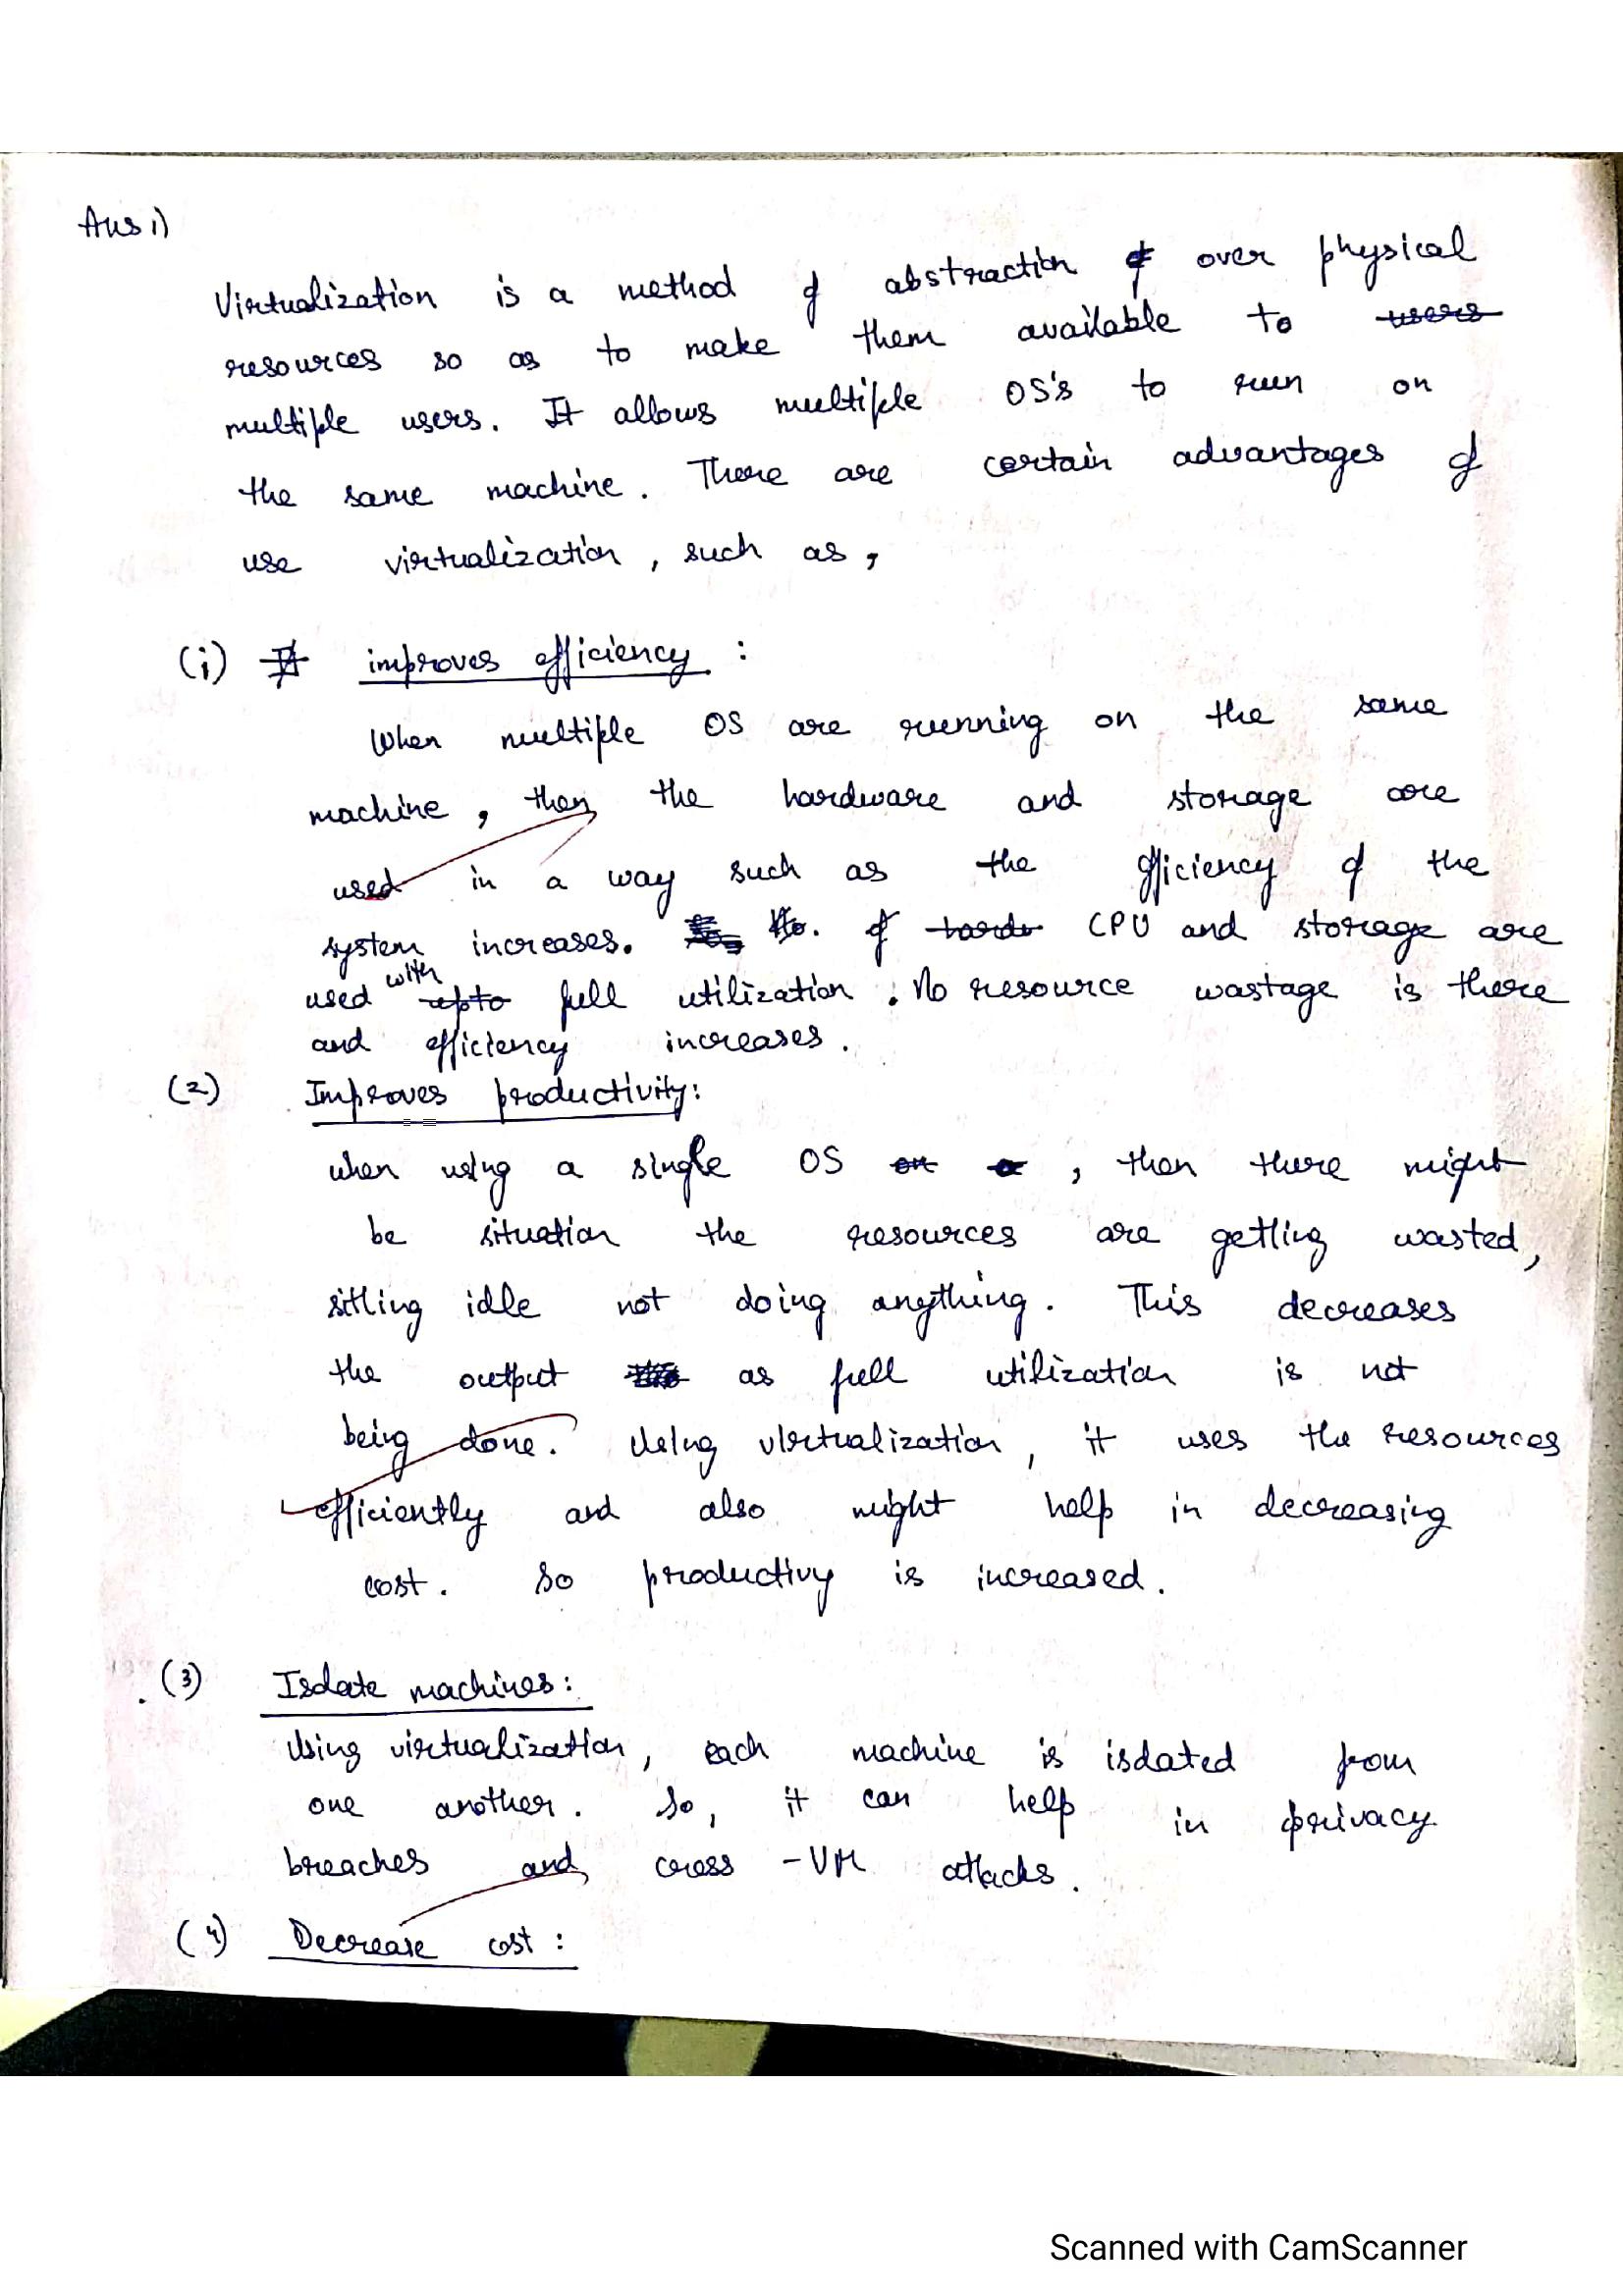 Ans 1)
Virtualization is a method of abstraction of over physical
resources so as to make them available to users
multiple users. It allows multiple OS's to run on
the same machine. There are certain advantages of
use virtualization, such as,
(i) It improves efficiency :
When multiple OS are running on the same
machine, then the hardware and storage are
used in a way such as the efficiency of the
system increases. No. of hardw CPU and storage are
with
used upto full utilization. No resource wastage is there
and efficiency increases.
(2) Improves productivity:
when using a single OS on a, then there might
be situation the resources are getting wasted,
sitting idle not doing anything. This decreases
the output as full utilization is not
being done. Using virtualization, it uses the resources
efficiently and also might help in decreasing
cost. So productivy is increased.
(3) Isolate machines:
Using virtualization, each machine is isolated from
one another. So, it can help in privacy
breaches and cross -VM attacks.
(4) Decrease cost :
Scanned with CamScanner